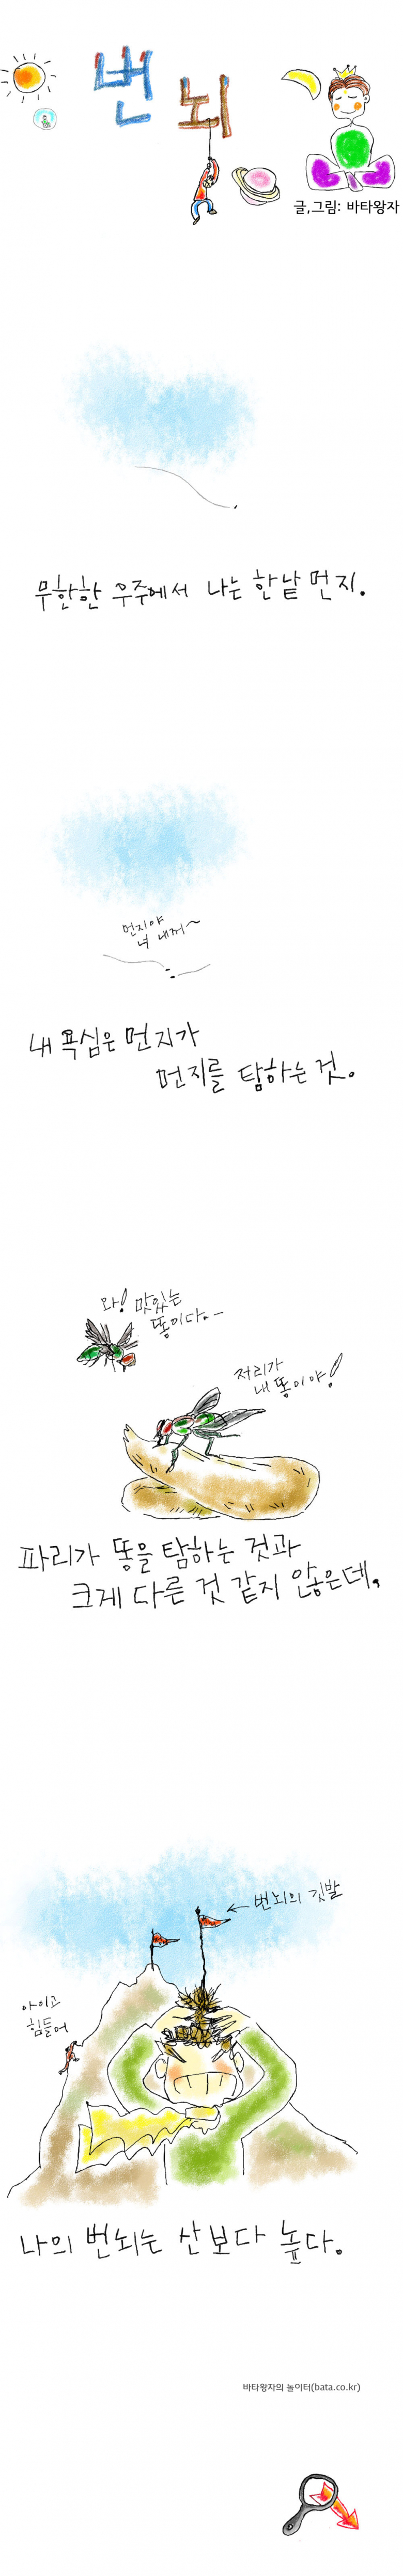 번뇌
글,그림: 바타왕자
무한한 우주에서 나는 한낱 먼지.
먼지야
너 내꺼~
내 욕심은 먼지가
먼지를 탐하는 것.
와! 맛있는
똥이다.~
저리가
내 똥이야!
파리가 똥을 탐하는 것과
크게 다른 것 같지 않은데,
번뇌의 깃발
아이고
힘들어
나의 번뇌는 산보다 높다.
바타왕자의 놀이터(bata.co.kr)